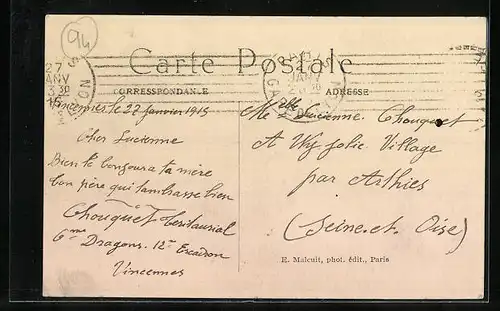 94
Carte Postale
CORRESPONDANCE
ADRESSE
27
JANV
3 30
Vincennes le 22 janvier 1915
Cher Lucienne
Bien le bonjour a ta mère
ton père qui t'ambrasse bien
Chouquet teritaurial
6me Dragons. 12e Escadron
Vincennes
Melle Lucienne Chouquet
A Wy Jolie Village
par Arthies
(Seine et Oise)
E. Malcuit, phot. édit., Paris